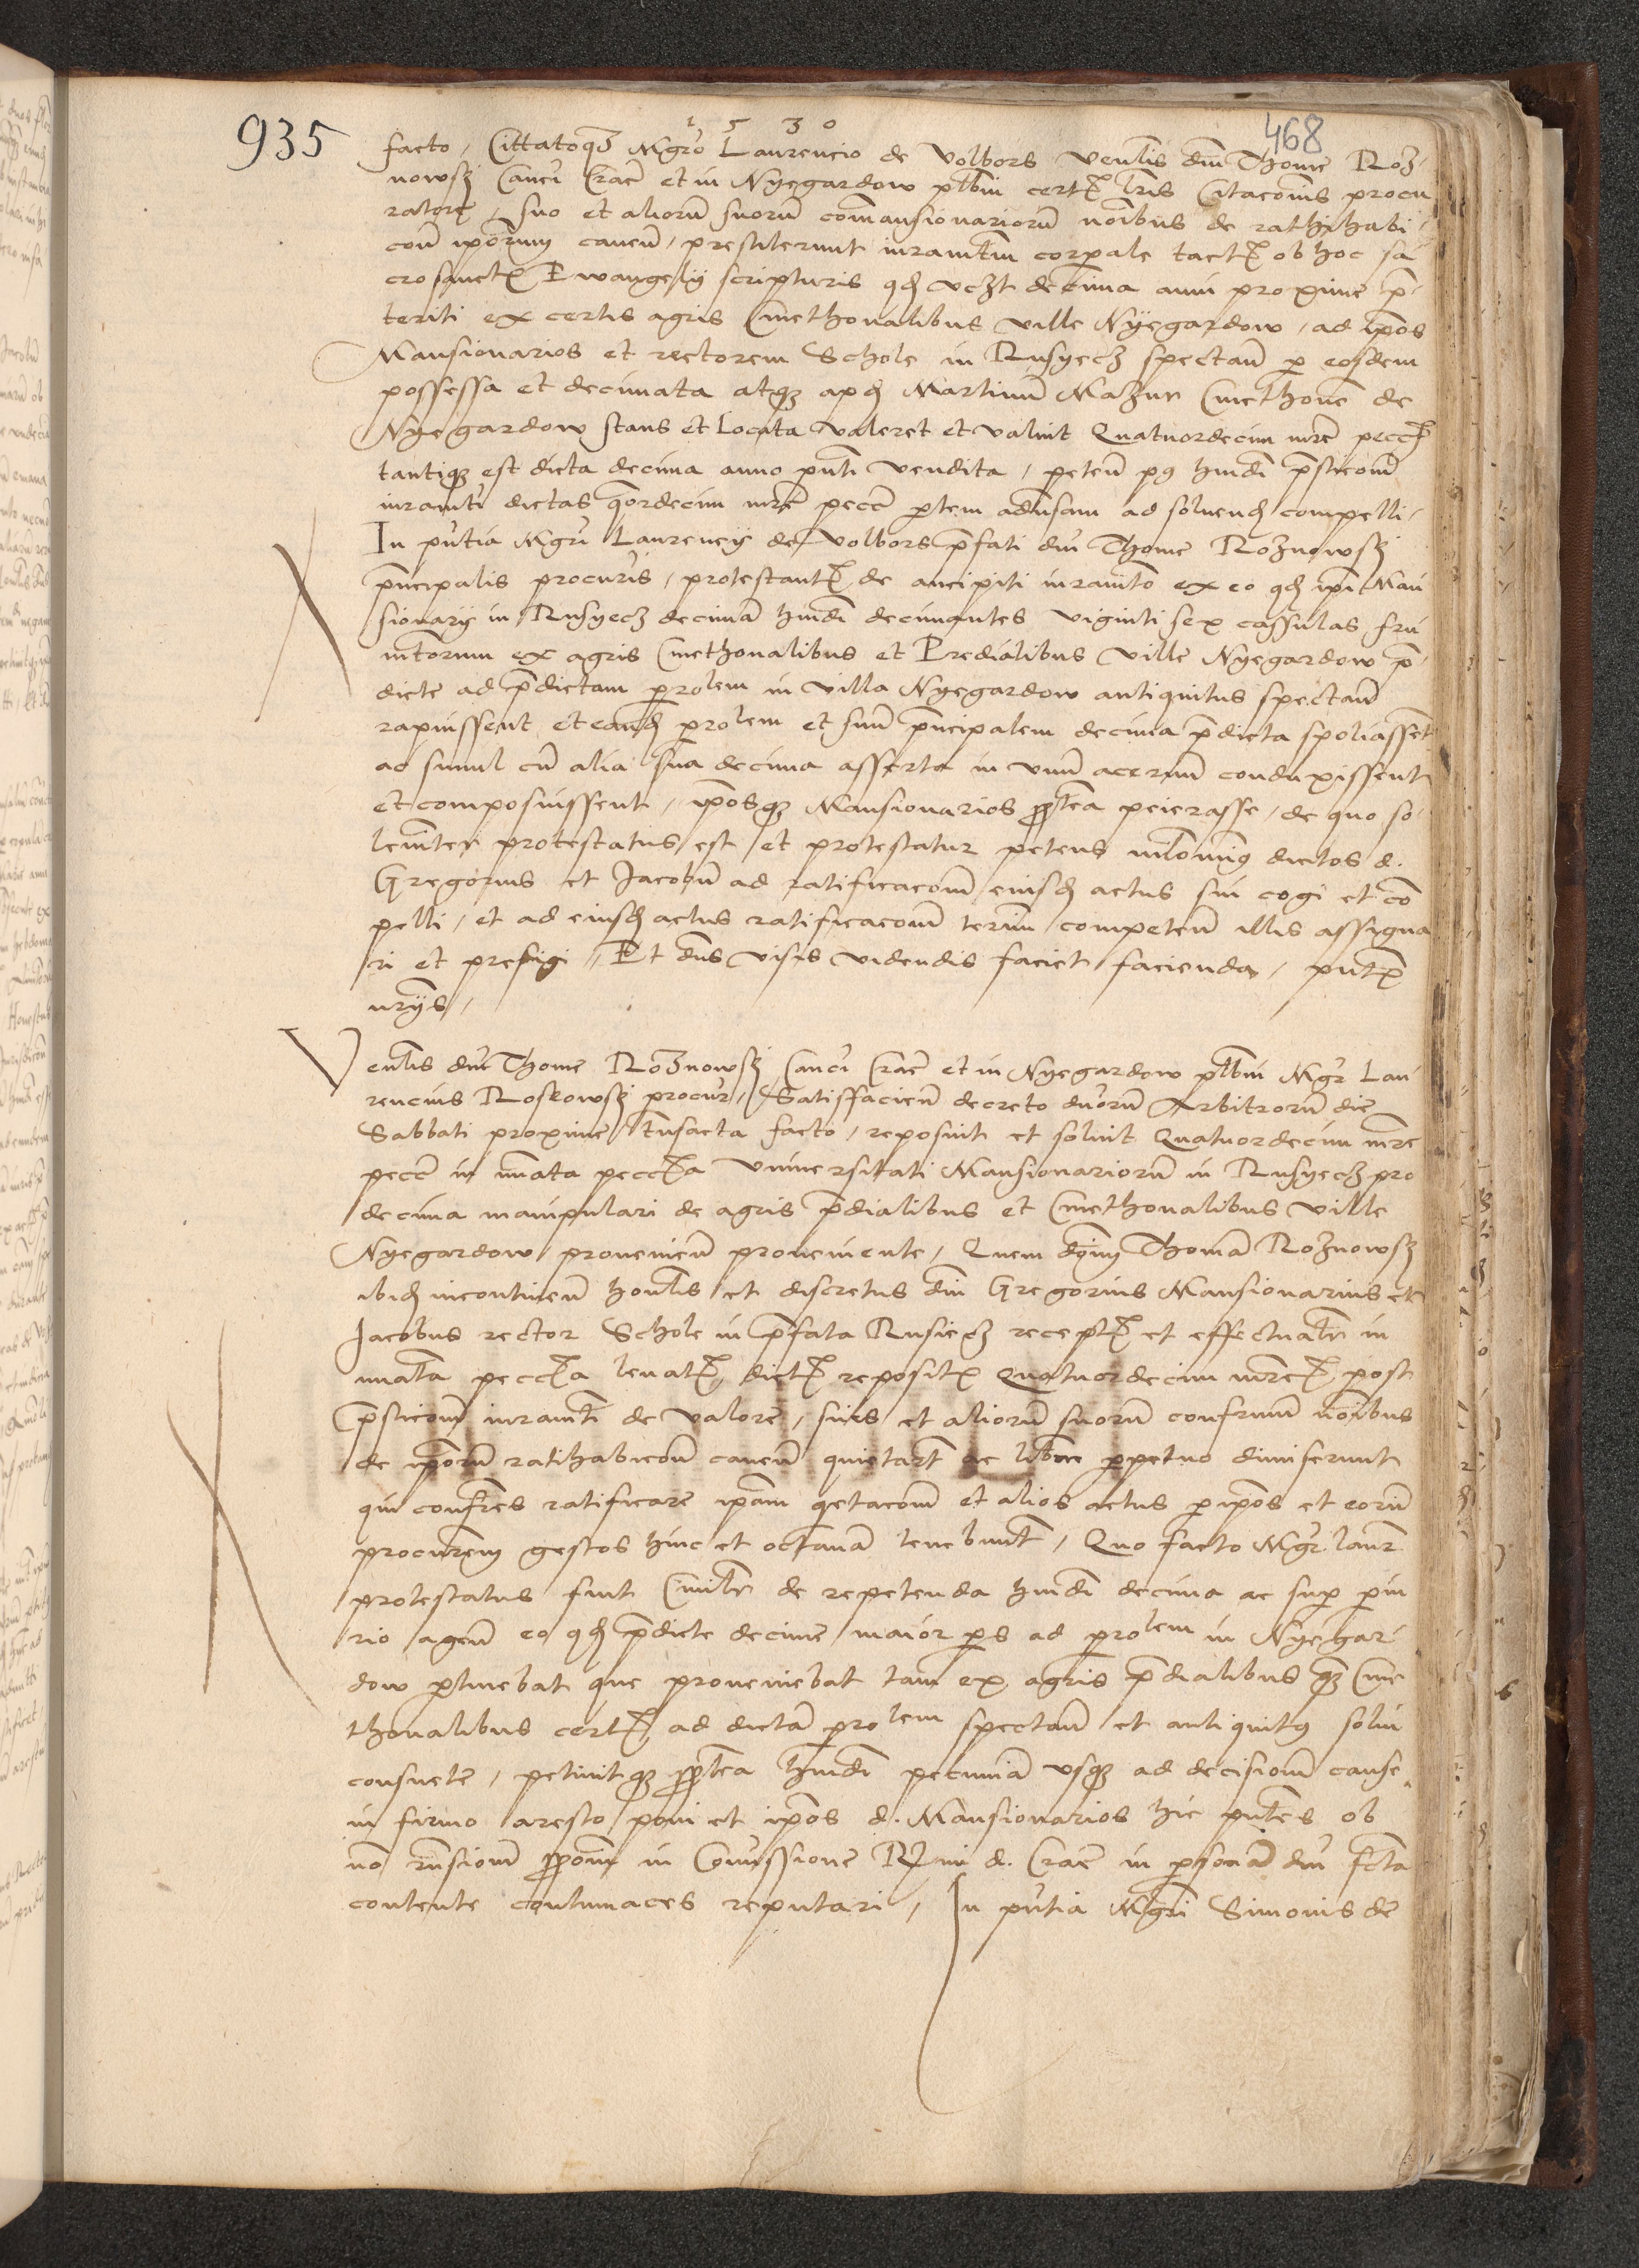 1530
935
468
facto, Cittatoq3 Mgro Laurencio de Volbors Venlis dni Thome Roz-
nowskj Canci Crac et in Nyegardow plbni certis lris Citacionis procu
ratore, suo et aliorum suorum comansionariorum noibus de rathihabi-
coe iporum caven, prestiterunt iuramtum corpale tactis ob hoc sa
crosanctis Ewangelij scripturis qd vczt decima anni proxime p-
teriti ex certis agris Cmethonalibus ville Nyegardow, ad ipos
Mansionarios et rectorem Schole in Rusyecz spectan p eosdem
possessa et decimata atq3 apd Martinum Mazur Cmethone de
Nyegardow stans et locata valeret et valuit Quatuordecim mrc pecc
tantiq3 est dicta decima anno pnti vendita, peten post hmodi psticom
iuramti dictas qordecim mrc pecc ptem adversam ad solvend compelli,
In pntia Mgri Laurencij de Volbors pfati dni Thome Roznowskj
principalis procuris, protestantis de ancipiti iuramto ex eo qd ipi Man
sionarij in Rusyecz decimam hmodi decimantes viginti sex cassulas fru
mtorum ex agris Cmethonalibus et Predialibus ville Nyegardow p-
dicte ad pdictam prolem in villa Nyegardow antiquitus spectan
rapuissent et eand prolem et suum principalem decima pdicta spoliassent
ac simul cum alia sua decima asserta in unum acervum conduxissent
et composuissent, iposq3 Mansionarios pptea peierasse, de quo so-
lemniter protestatus est et protestatur petens nilominus dictos d.
Gregorius et Jacobum ad ratificacom eiusd actus sui cogi et com
pelli, et ad eiusd actus ratificacom terminum competen illis assigna
ri et prefigi, Et dns visis videndis faciet facienda, pntibus
nrijs,
Venlis dni Thome Roznowskj Canci Crac et in Nyegardow plbni Mgr Lau
rencius Roskowskj procur, Satisfacien decreto duorum Arbitrorum die
Sabbati proxime transacta facto, reposuit et solvit Quatuordecim mrc
pecc in nuata peccia Universitati Mansionariorum in Rusyecz pro
decima manipulari de agris pdialibus et Cmethonalibus ville
Nyegardow provenien proveniente, Quem dominum Thomam Roznowskj
ibid incontinen honlis et discretus dni Gregorius Mansionarius et
Jacobus rector Schole in pfata Rusiecz receptis et effectualiter in
nuata peccia levatis dictis repositis Quatuordecim mrcis post
psticom iuramti de valore, suis et aliorum suorum confrum noibus
de iporum ratihabicom caven quietarunt ac libere ppetuo dimiserunt
qui confres ratificare ipam qetacom et alios actus p ipos et eorum
procurem gestos hinc et octavam tenebunt, Quo facto Mgr laur
protestatus fuit Cmilr de repetenda hmodi decima ac sup piu
rio agen eo qd pdicte decime maior ps ad prolem in Nyegar-
dow ptinebat que proveniebat tam ex agris pdialibus q3 Cme
thonalibus certis ad dictam prolem spectan et antiquitus solvi
consuete, petivitq3 pptea hmodi pecuniam usq3 ad decisiom cause
in firmo aresto poni et ipos d. Mansionarios hic pntes ob
no rnsiom pposit in Comissione Rmi d. Crac in psonam dni fcta
contente contumaces reputari, In pntia Mgri Simonis de